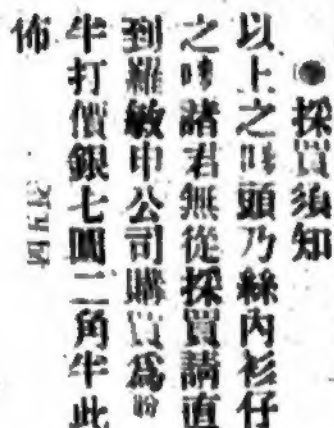 ●採買須知
以上之嘜頭乃絲內衫仔
之嘜諸君無從採買請直
到羅敏申公司購買為盼
半打價銀七圓二角半此
佈
四五長